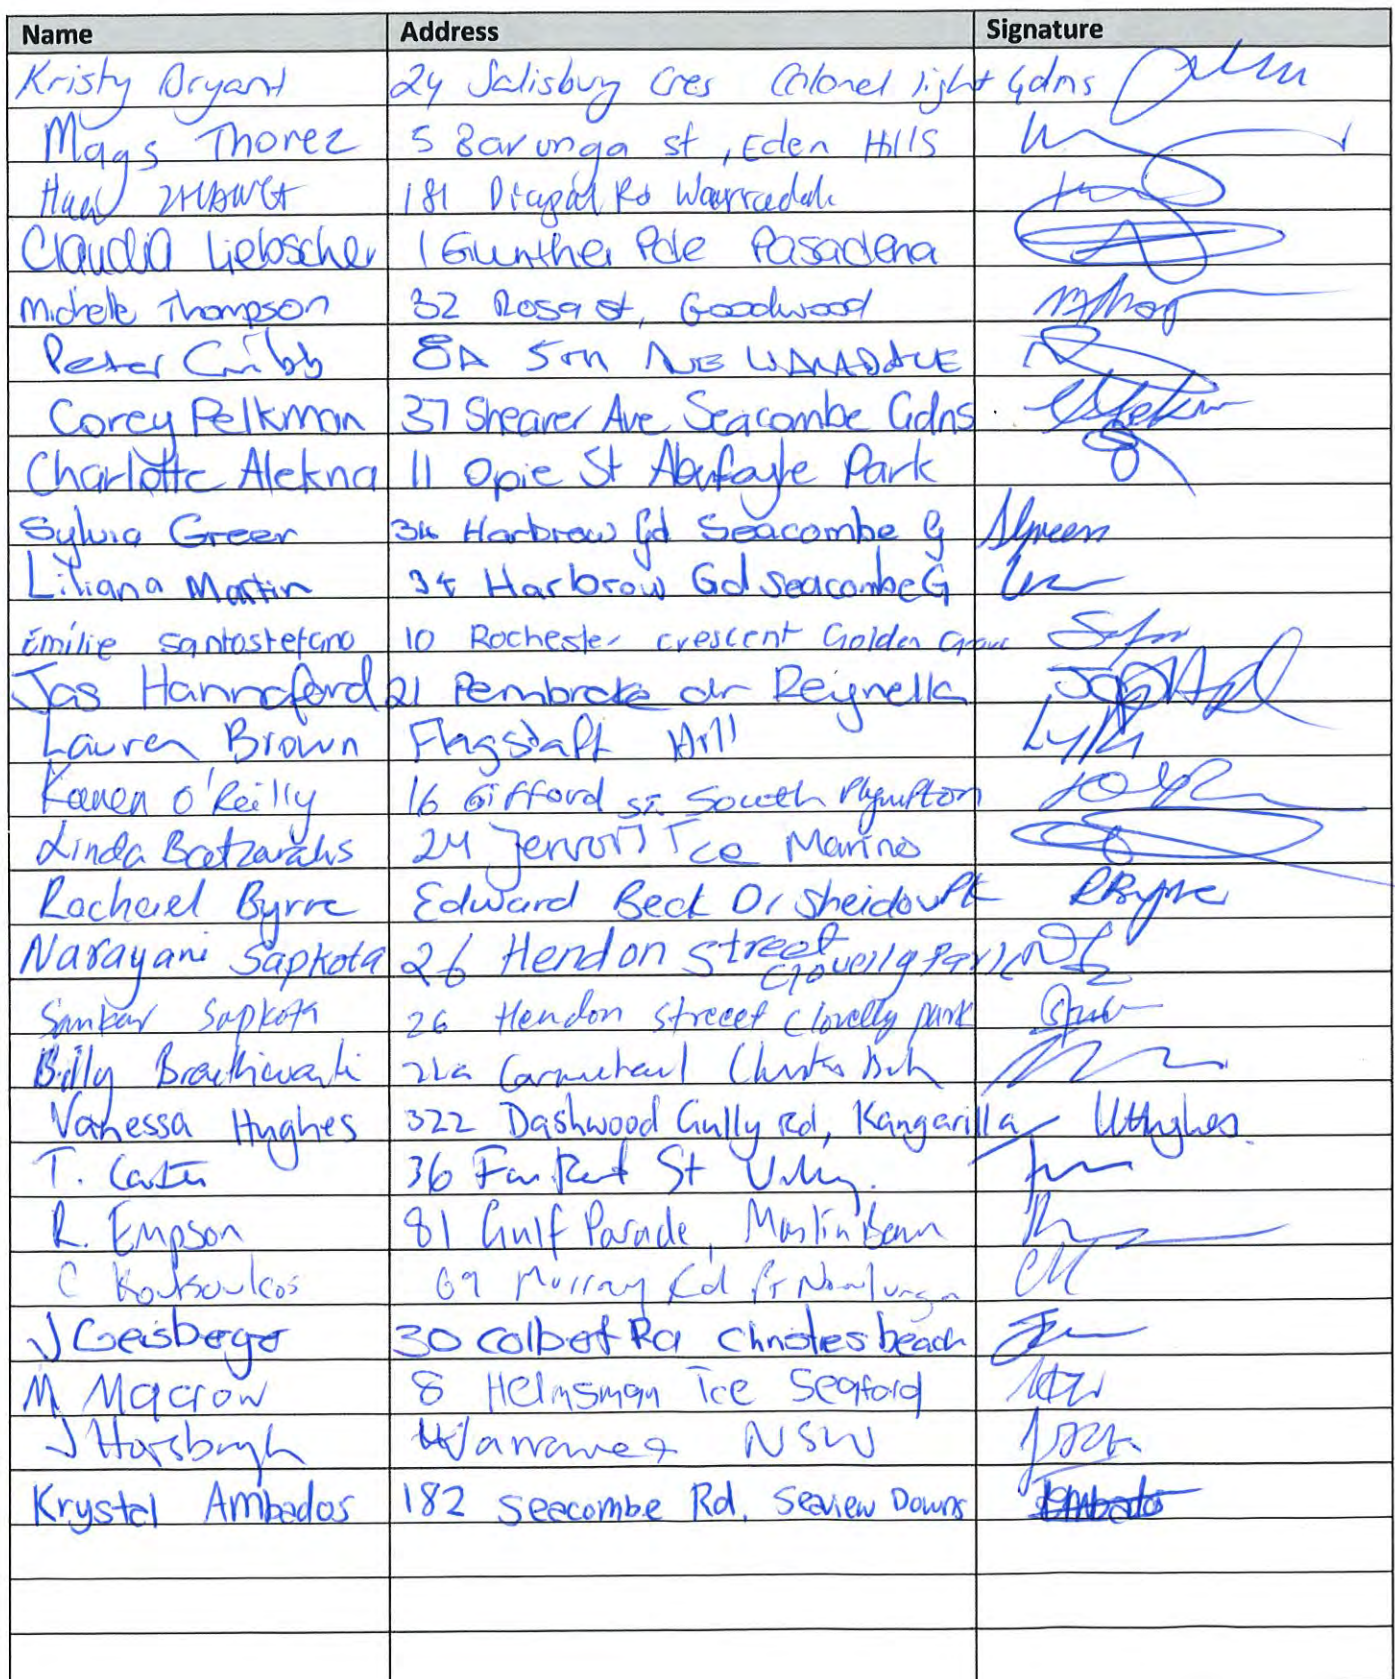 Name Address Signature
Kristy Bryant 24 Salisbury Cres Colonel light Gdns
Mags Thorez 5 Barunga st, Eden Hills
181 Rd Warradale
Claudia Liebscher 1 Gunther Pde Pasadena
Michelle Thompson 32 Rosa st, Goodwood
Peter Cribb 8A 5th AVE
Corey Pelkman 37 Shearer Ave Seacombe Gdns
Charlotte Alekna 11 Opie St Park
Sylvia Greer 34 Harbrow Gd Seacombe G SGreer
Liliana Martin 34 Harbrow Gd Seacombe G
Emilie Santostefano 10 Rochester crescent Golden Grove
Jas Hannaford 21 Pembroke dr Reynella
Lauren Brown Flagstaff Hill
O'Reilly 16 Gifford st South Plympton
Linda 24 Tce Marino
Rachael Byrne Edward Beck Dr Sheidow Pk RByrne
Narayani Sapkota 26 Hendon Street Clovelly Park
Sapkota 26 Hendon streeet clovelly park
Billy
Vanessa Hughes 322 Dashwood Gully Rd, Kangarilla VHughes
T. 36 St
R. Empson 81 Gulf Parade,
C Koutsoukos 69 Murray Rd
J Geisberger 30 Rd beach
M Macrow 8 Helmsman Tce Seaford
J Horsburgh NSW
Krystal Ambados 182 Seacombe Rd, Seaview Downs